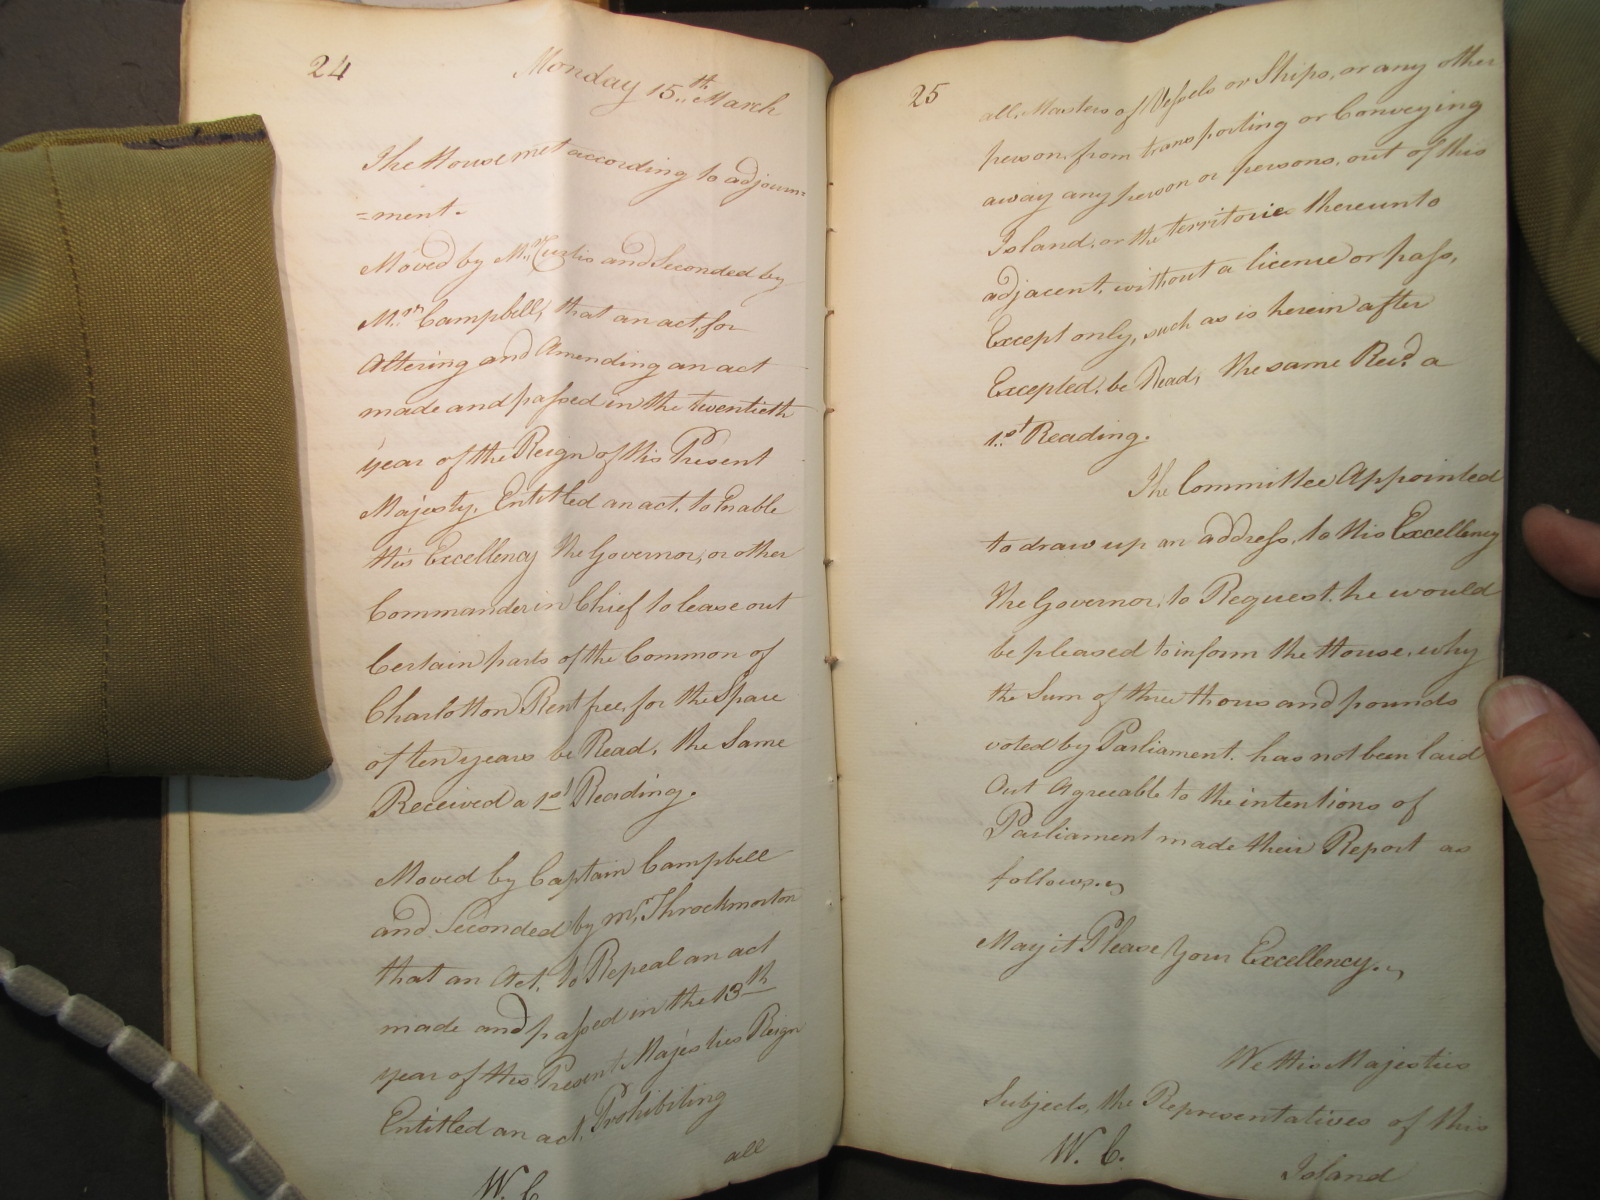 24
Monday 15.th March
The House met according to adjourn=
=ment.
Moved by Mr. Curtis and Seconded by
Mr. Campbell, that an act, for
Altering and Amending an act
made and passed in the twentieth
year of the Reign of His Present
Majesty, Entitled an act, to Enable
His Excellency the Governor, or other
Commander in Chief to lease out
Certain parts of the Common of
Charlotton Rent free, for the Space
of ten years be Read, the Same
Received a 1st Reading.
Moved by Captain Campbell
and Seconded by mr. Throckmorton
that an Act, to Repeal an act
made and passed in the 13th
year of His Present Majesties Reign
Entitled an act, Prohibiting
all
W. C
25
all, Masters of Vessels or Ships, or any other
person, from transporting or Conveying
away any person or persons, out of this
Island, or the territorie thereunto
adjacent, without a licence or pass,
Except only, such as is herein after
Excepted, be Read, the same Recd. a
1st Reading.
The Committee Appointed
to draw up an address, to His Excellency
the Governor, to Request, he would
be pleased to inform the House, why
the Sum of three thousand pounds
voted by Parliament, has not been laid
Out Agreeable to the intentions of
Parliament made their Report as
follows.
May it Please Your Excellency.
We His Majesties
Subjects, the Representatives of this
W. C.
Island